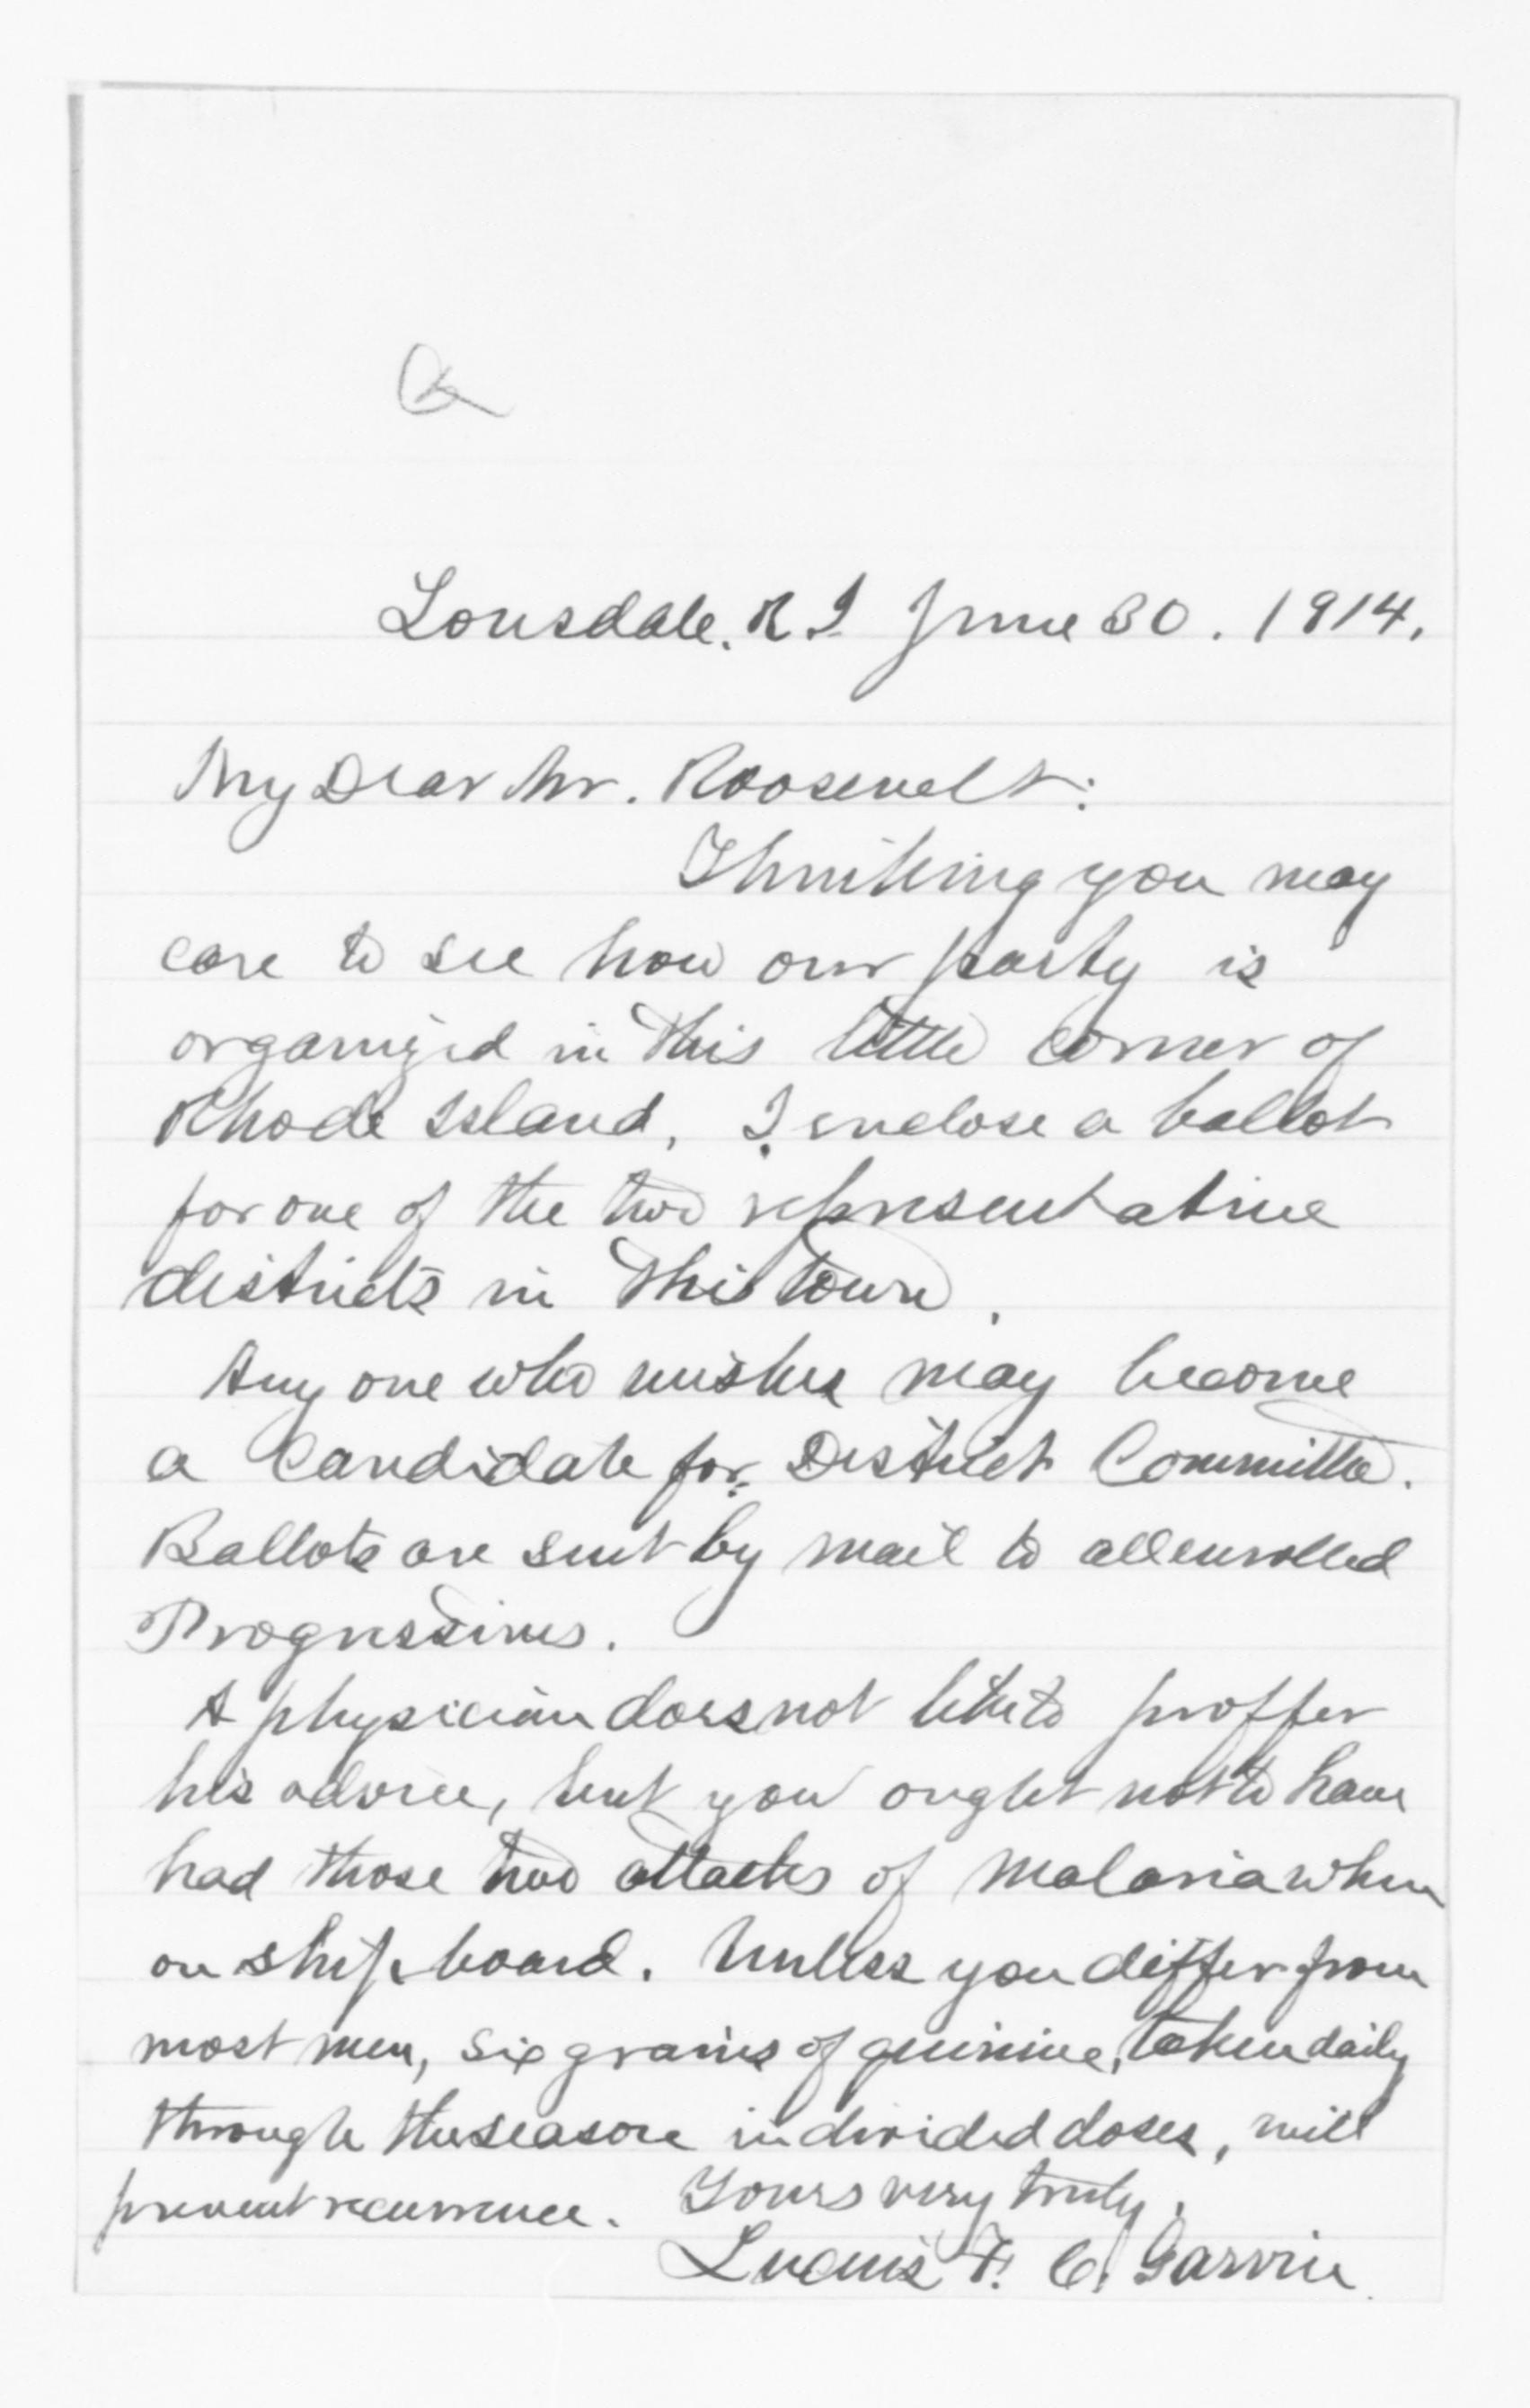 Lonsdale. R I June 30. 1914.
My Dear Mr. Roosevelt:
Thinking you may
care to see how our party is
organized in this little corner of
Rhode Island, I enclose a ballot
for one of the two representative
districts in this town.
Any one who wishes may become
a Candidate for District Committee.
Ballots are sent by mail to all enrolled
Progressives.
A physician does not like to proffer
his advice, but you ought not to have
had those two attacks of malaria when
on ship board. Unless you differ from
most men, six grains of quinine, taken daily
through the season in divided doses, will
prevent recurrence. Yours very truly,
Lucius F. C. Garvin